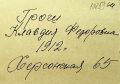 Гроги
Клавдия Федоровна
1912.
Херсонская 65